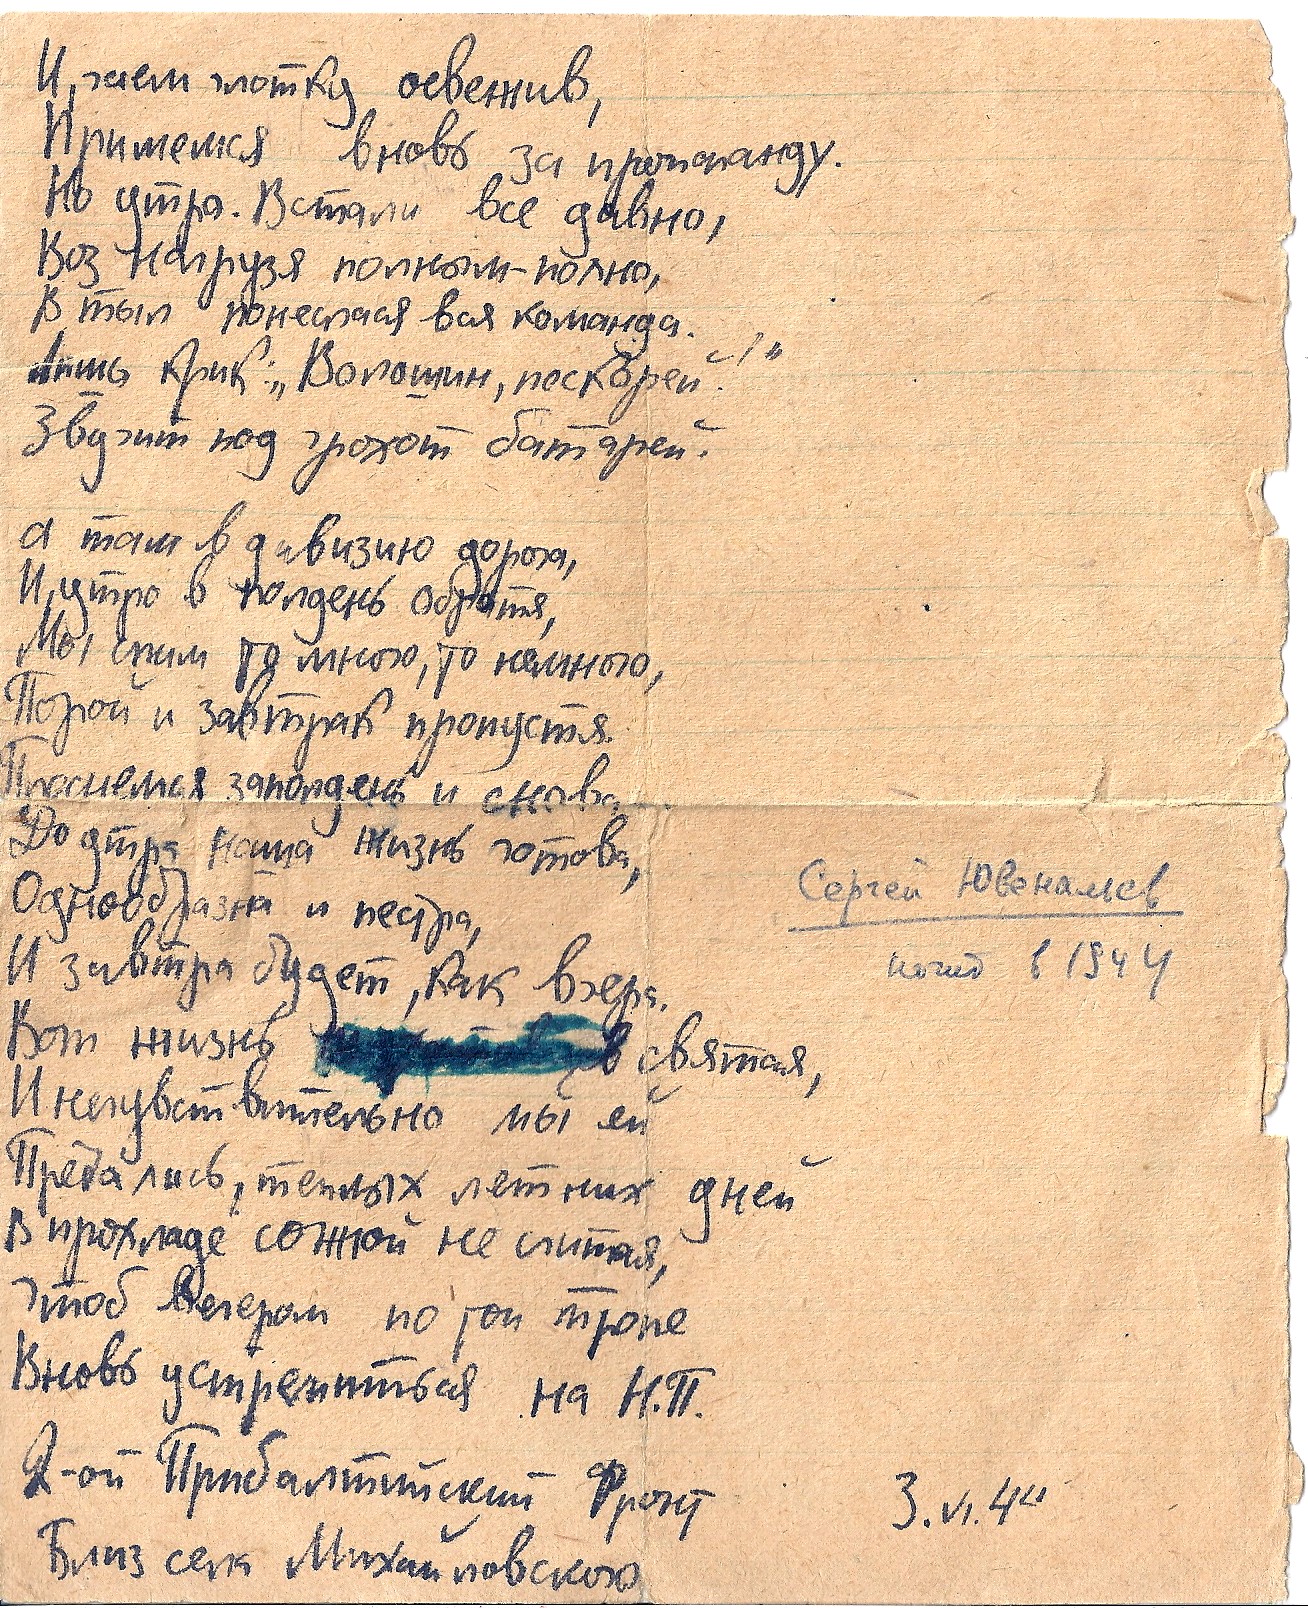 И, чаем глотку освежив,
Примемся вновь за пропаганду.
Но утро. Встали все давно,
Воз нагрузя полным-полно,
В тыл понеслася вся команда.
Лишь крик: „Волошин, поскорей!"
Звучит под грохот батарей.
А там в дивизию дорога,
И, утро в полдень обратя,
Мы спим то много, то немного,
Порой и завтрак пропустя.
Проснемся заполдень и снова
До утра наша жизнь готова,
Однообразна и пестра,
И завтра будет, как вчера.
Вот жизнь святая,
И нечувствительно мы ей
Предались, теплых летних дней
В прохладе сонной не считая,
Чтоб вечером по той тропе
Вновь устремиться на Н.П.
2-ой Прибалтийский Фронт
3.VI.44
Близ села Михайловского
Сергей Ювенальев
погиб в 1944